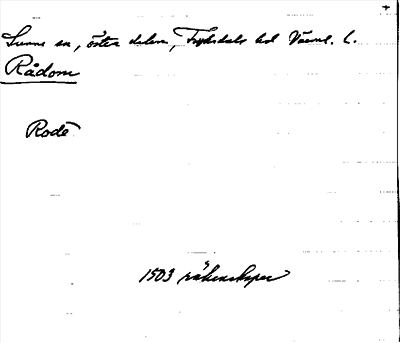 Sunne sn, östra delen, Fryksdals hd Värml. l.
Rådom
Rode
1503 räkenskaper